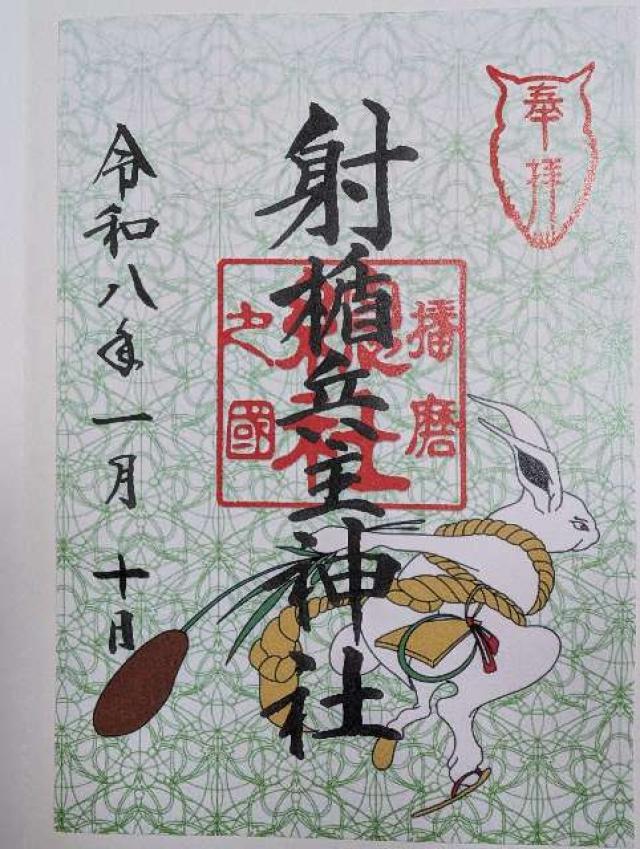 奉拝
射楯兵主神社
播磨
総社
之国
令和八年一月十日